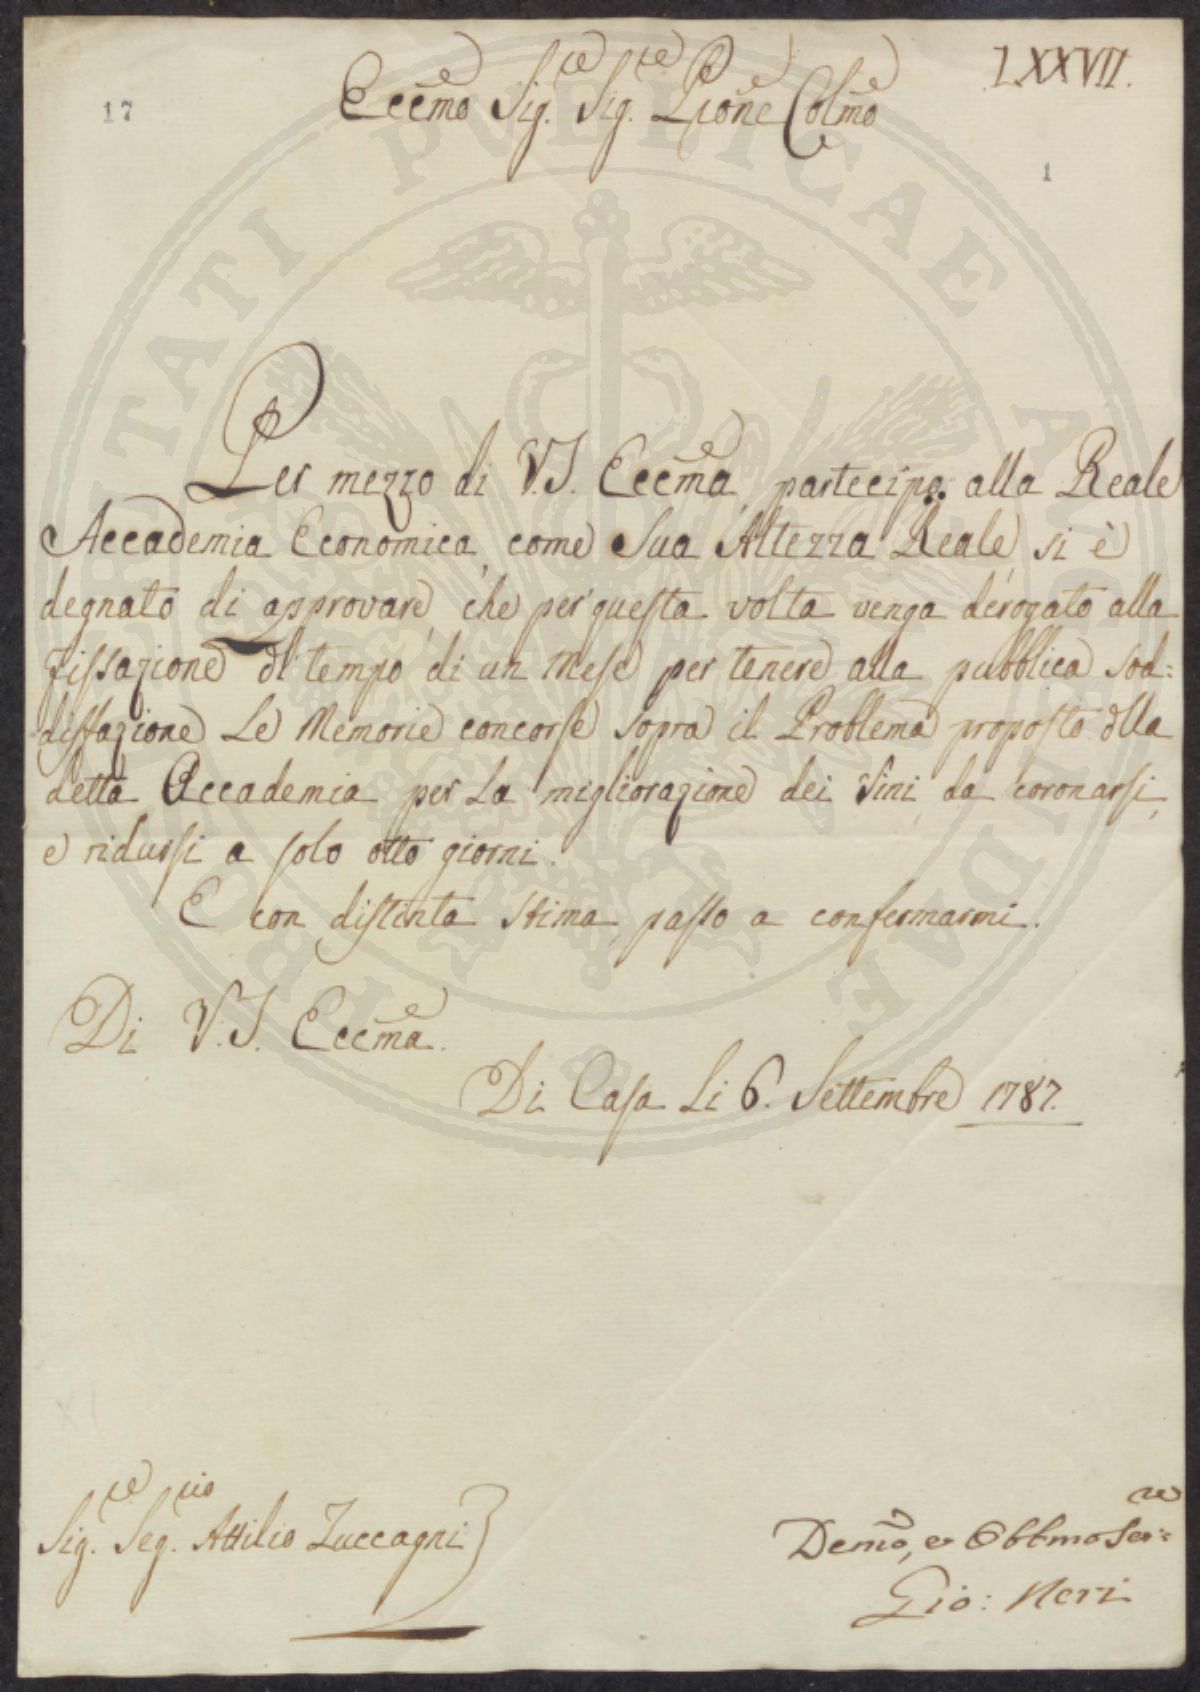 LXXVII.
17
Eccmo Sig.re Sig.re Prone Colmo
1
Per mezzo di V.S. Eccma, partecipo alla Reale
Accademia Economica, come Sua Altezza Reale si è
degnato di approvare, che per questa volta venga derogato alla
fissazione di tempo di un Mese per tenere alla pubblica sod=
disfazione Le Memorie concorse sopra il Problema proposto dlla
detta Accademia per La migliorazione dei Vini, da coronarsi,
e ridursi a solo otto giorni.
E con distinta stima, passo a confermarmi.
Di V.S. Eccma.
Di Casa Li 6. Settembre 1787.
Sig.re Seg.rio Attilio Zuccagni
Devmo, e Obbmo Ser:re
Gio: Neri
PUBLICAE